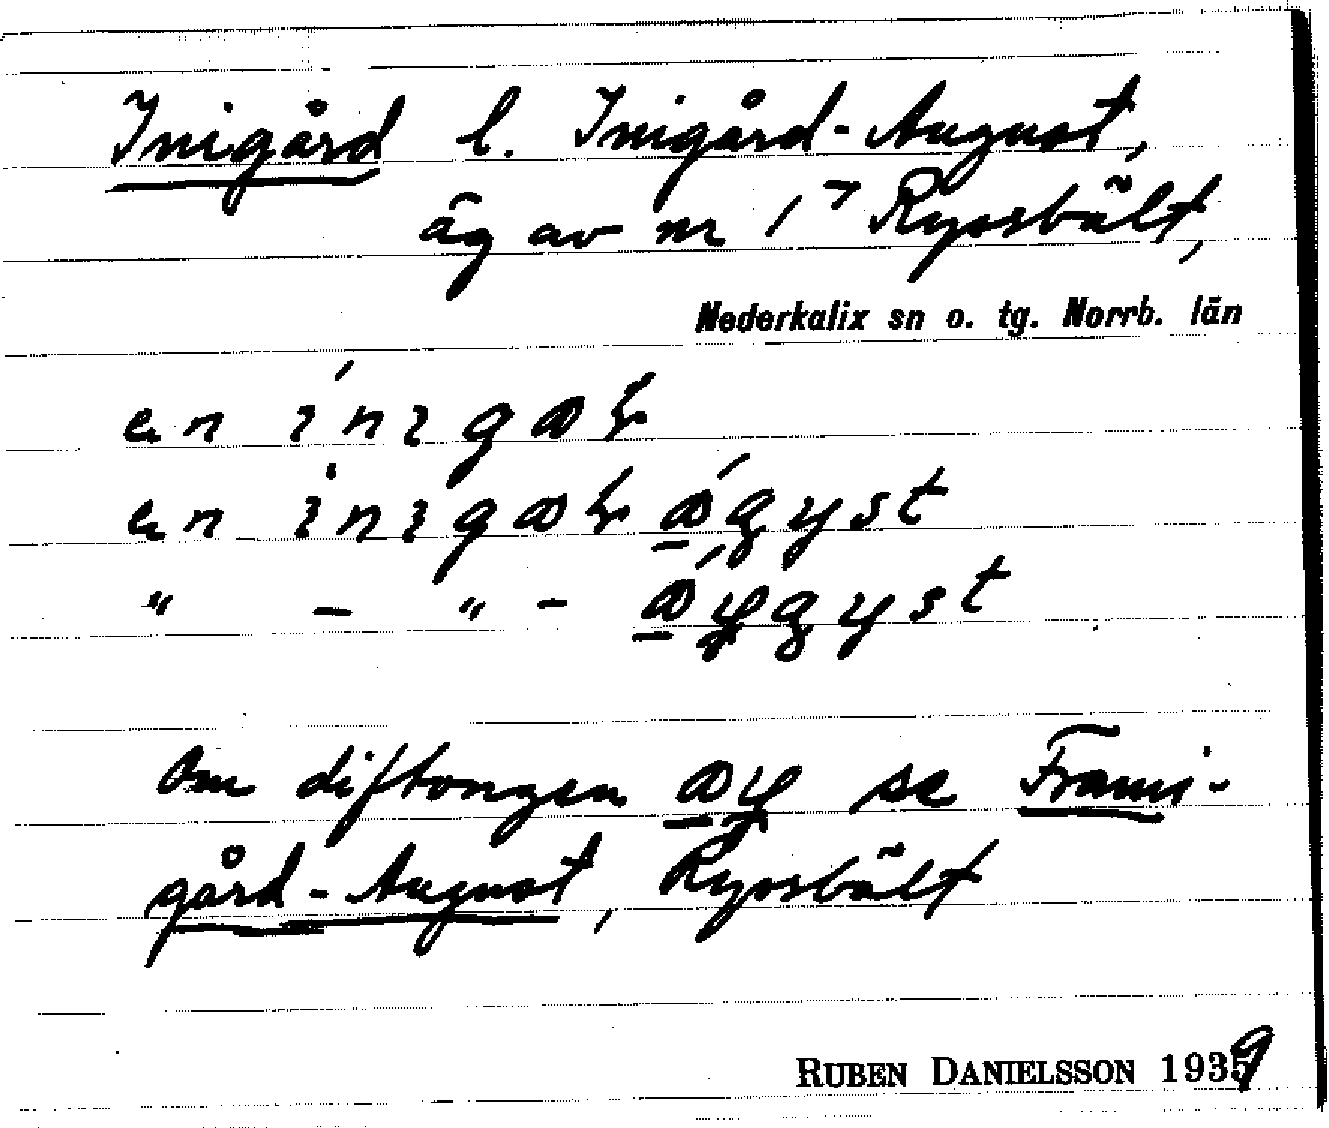 Inigård l. Inigård-August,
äg av nr 17 Ryssbält,
Nederkalix sn o. tg. Norrb. län
en
en
" - " -
Om diftongen se Frami-
gård-August, Ryssbält
RUBEN DANIELSSON 1939